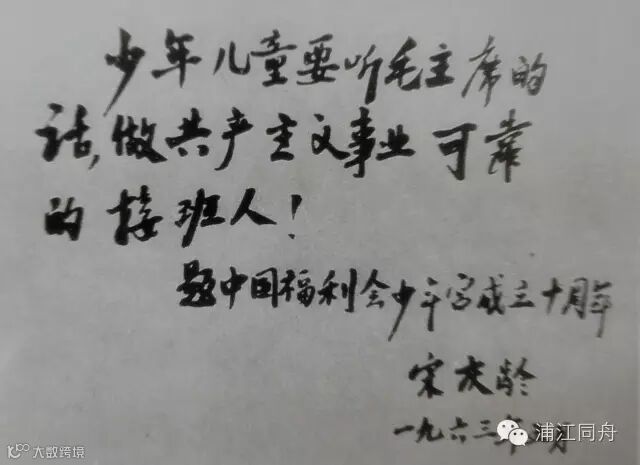 少年儿童要听毛主席的
话,做共产主义事业可靠
的接班人!
题中国福利会少年宫成立十周年
宋庆龄
一九六三年 月
浦江同舟
大数跨境